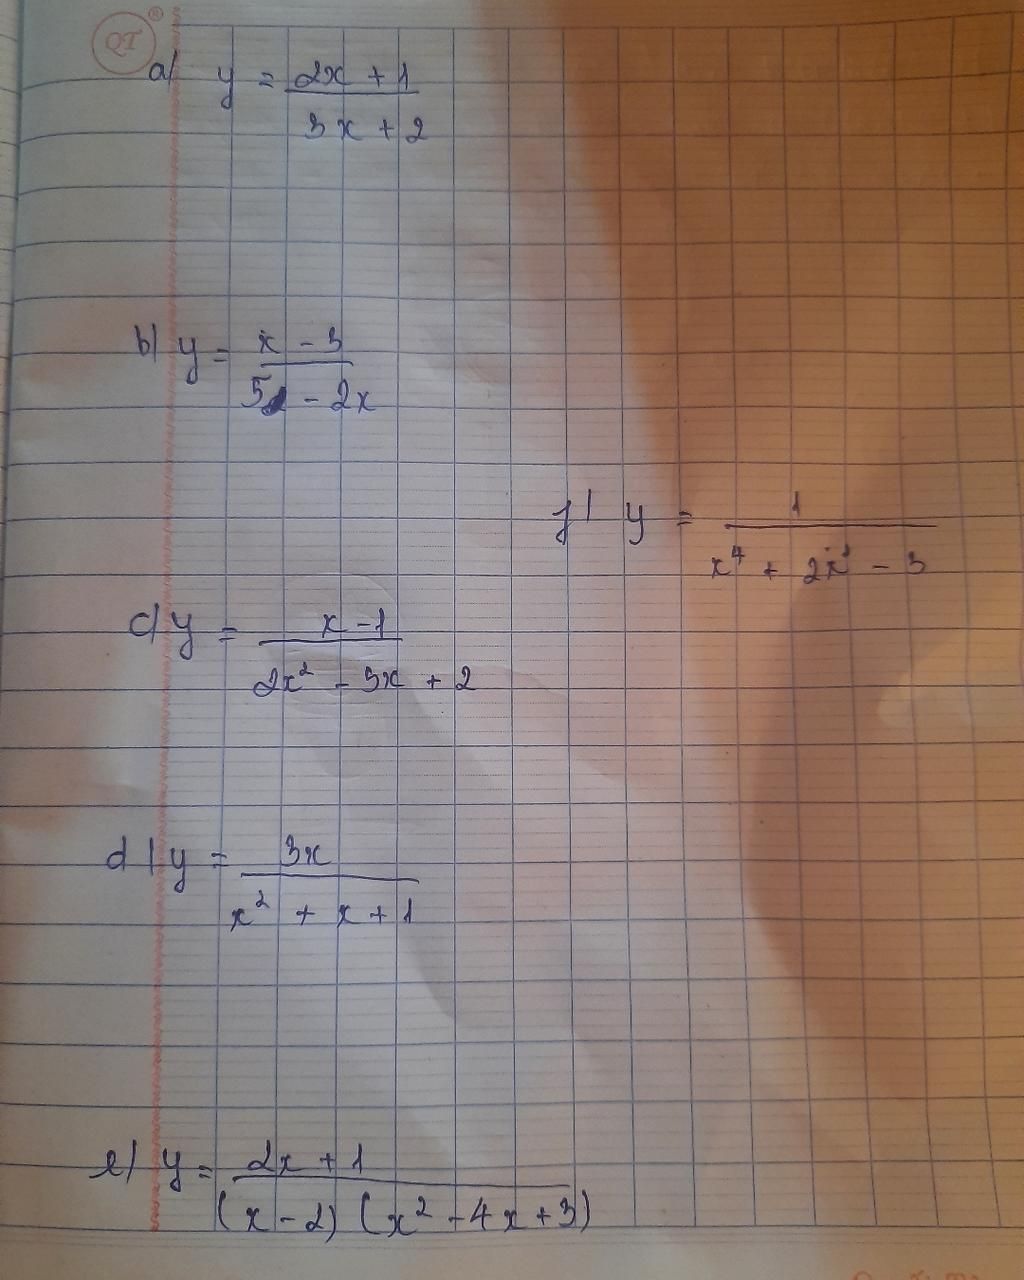 QT
a) y = (2x + 1)/(3x + 2)
b) y = (x - 3)/(5 - 2x)
f) y = 1/(x⁴ + 2x² - 3)
c) y = (x - 1)/(2x² - 5x + 2)
d) y = 3x/(x² + x + 1)
e) y = (2x + 1)/((x - 2)(x² - 4x + 3))